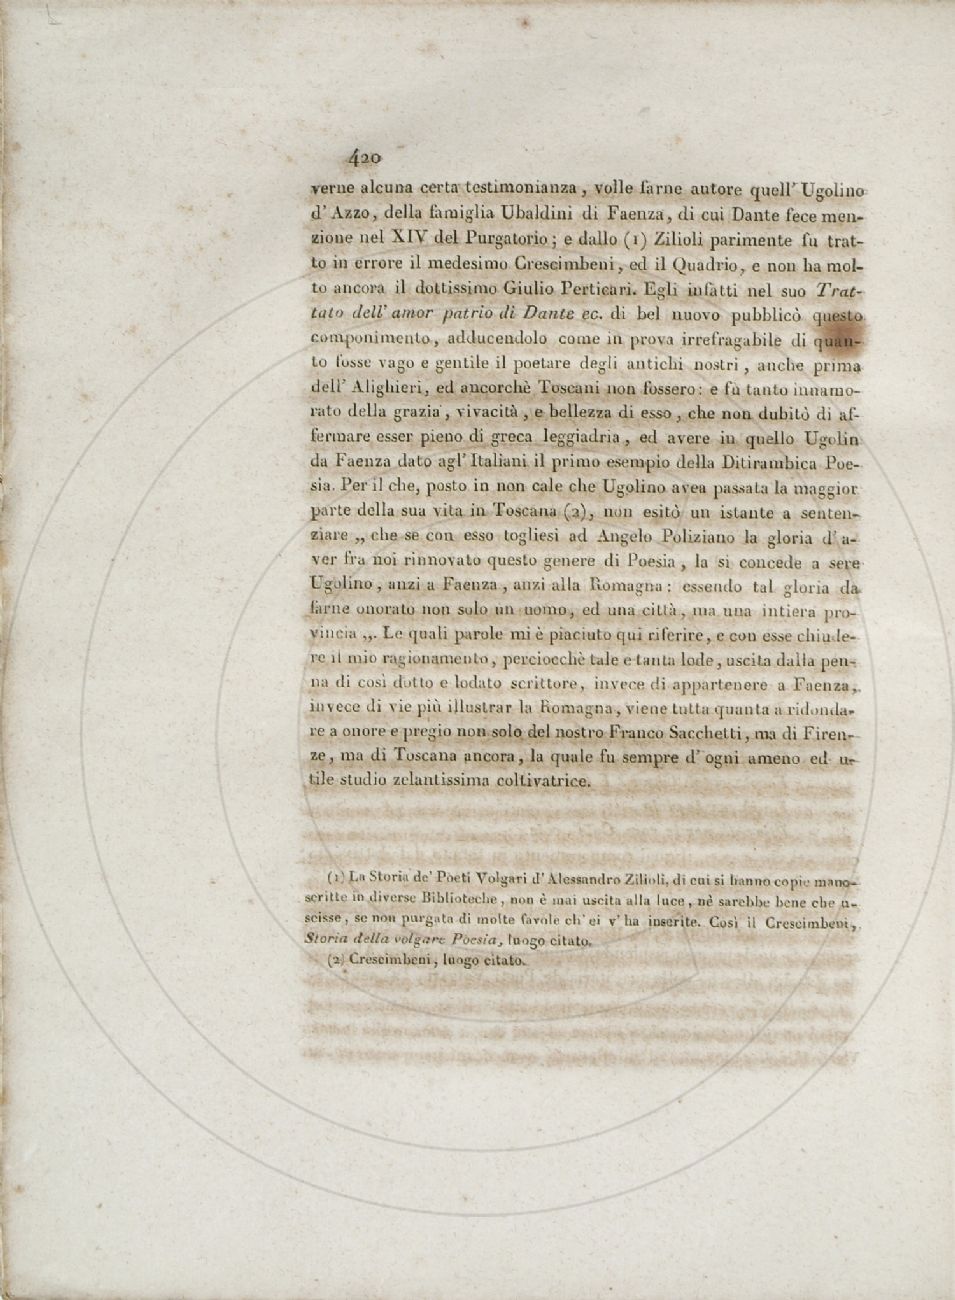 420
verne alcuna certa testimonianza, volle farne autore quell' Ugolino
d' Azzo, della famiglia Ubaldini di Faenza, di cui Dante fece men-
zione nel XIV del Purgatorio; e dallo (1) Zilioli parimente fu trat-
to in errore il medesimo Crescimbeni, ed il Quadrio, e non ha mol-
to ancora il dottissimo Giulio Perticari. Egli infatti nel suo Trat-
tato dell' amor patrio di Dante ec. di bel nuovo pubblicò questo
componimento, adducendolo come in prova irrefragabile di quan-
to fosse vago e gentile il poetare degli antichi nostri, anche prima
dell' Alighieri, ed ancorchè Toscani non fossero: e fu tanto innamo-
rato della grazia, vivacità, e bellezza di esso, che non dubitò di af-
fermare esser pieno di greca leggiadria, ed avere in quello Ugolin
da Faenza dato agl' Italiani il primo esempio della Ditirambica Poe-
sia. Per il che, posto in non cale che Ugolino avea passata la maggior
parte della sua vita in Toscana (2), non esitò un istante a senten-
ziare „ che se con esso togliesi ad Angelo Poliziano la gloria d' a-
ver fra noi rinnovato questo genere di Poesia, la si concede a sere
Ugolino, anzi a Faenza, anzi alla Romagna: essendo tal gloria da
farne onorato non solo un uomo, ed una città, ma una intiera pro-
vincia „. Le quali parole mi è piaciuto qui riferire, e con esse chiude-
re il mio ragionamento, perciocchè tale e tanta lode, uscita dalla pen-
na di così dotto e lodato scrittore, invece di appartenere a Faenza,
invece di vie più illustrar la Romagna, viene tutta quanta a ridonda-
re a onore e pregio non solo del nostro Franco Sacchetti, ma di Firen-
ze, ma di Toscana ancora, la quale fu sempre d' ogni ameno ed u-
tile studio zelantissima coltivatrice.
(1) La Storia de' Poeti Volgari d' Alessandro Zilioli, di cui si hanno copie mano-
scritte in diverse Biblioteche, non è mai uscita alla luce, nè sarebbe bene che u-
scisse, se non purgata di molte favole ch' ei v' ha inserite. Così il Crescimbeni,
Storia della volgare Poesia, luogo citato.
(2) Crescimbeni, luogo citato.